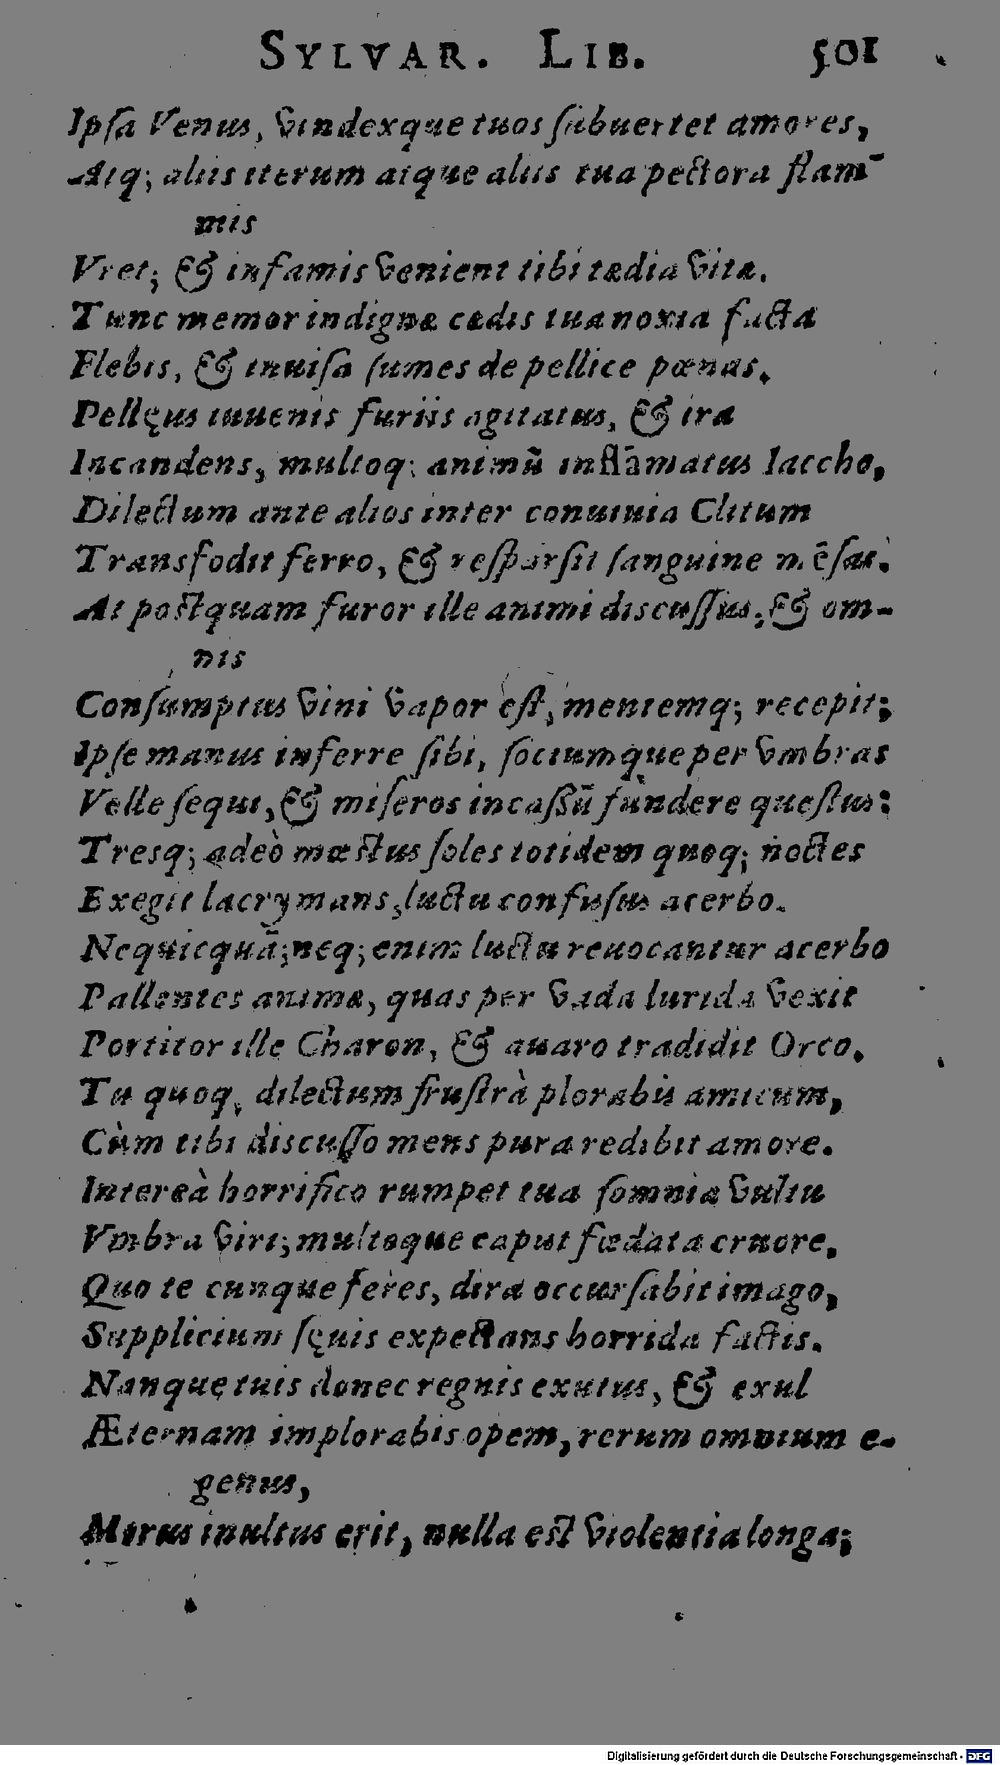 SYLVAR. LIB. 501
Ipſa Venus, vindexque tuos ſubuertet amores,
Atq; aliis iterum atque aliis tua pectora flam-
mis
Vret; & infamis venient tibi tædia vitæ.
Tunc memor indignæ cædis tua noxia facta
Flebis, & inuiſa ſumes de pellice pœnas.
Pellęus iuuenis furiis agitatus, & ira
Incandens, multoq; animũ inflāmatus Iaccho,
Dilectum ante alios inter conuiuia Clitum
Transfodit ferro, & reſparſit ſanguine mēſas.
At poſtquam furor ille animi diſcuſſus, & om-
nis
Conſumptus vini vapor eſt, mentemq; recepit;
Ipſe manus inferre ſibi, ſociumque per vmbras
Velle ſequi, & miſeros incaſſũ fundere queſtus:
Tresq; adeò mœſtus ſoles totidem quoq; noctes
Exegit lacrymans, luctu confuſus acerbo.
Nequicquã; neq; enim luctu reuocantur acerbo
Pallentes animæ, quas per vada lurida vexit
Portitor ille Charon, & auaro tradidit Orco.
Tu quoq; dilectum fruſtrà plorabis amicum,
Cùm tibi diſcuſſo mens pura redibit amore.
Intereà horrifico rumpet tua ſomnia vultu
Vmbra viri; multoque caput fœdata cruore,
Quo te cunque feres, dira occurſabit imago,
Supplicium ſęuis expectans horrida factis.
Nanque tuis donec regnis exutus, & exul
Æternam implorabis opem, rerum omnium e-
genus,
Morus inultus erit, nulla eſt violentia longa;
Digitalisierung gefördert durch die Deutsche Forschungsgemeinschaft - DFG